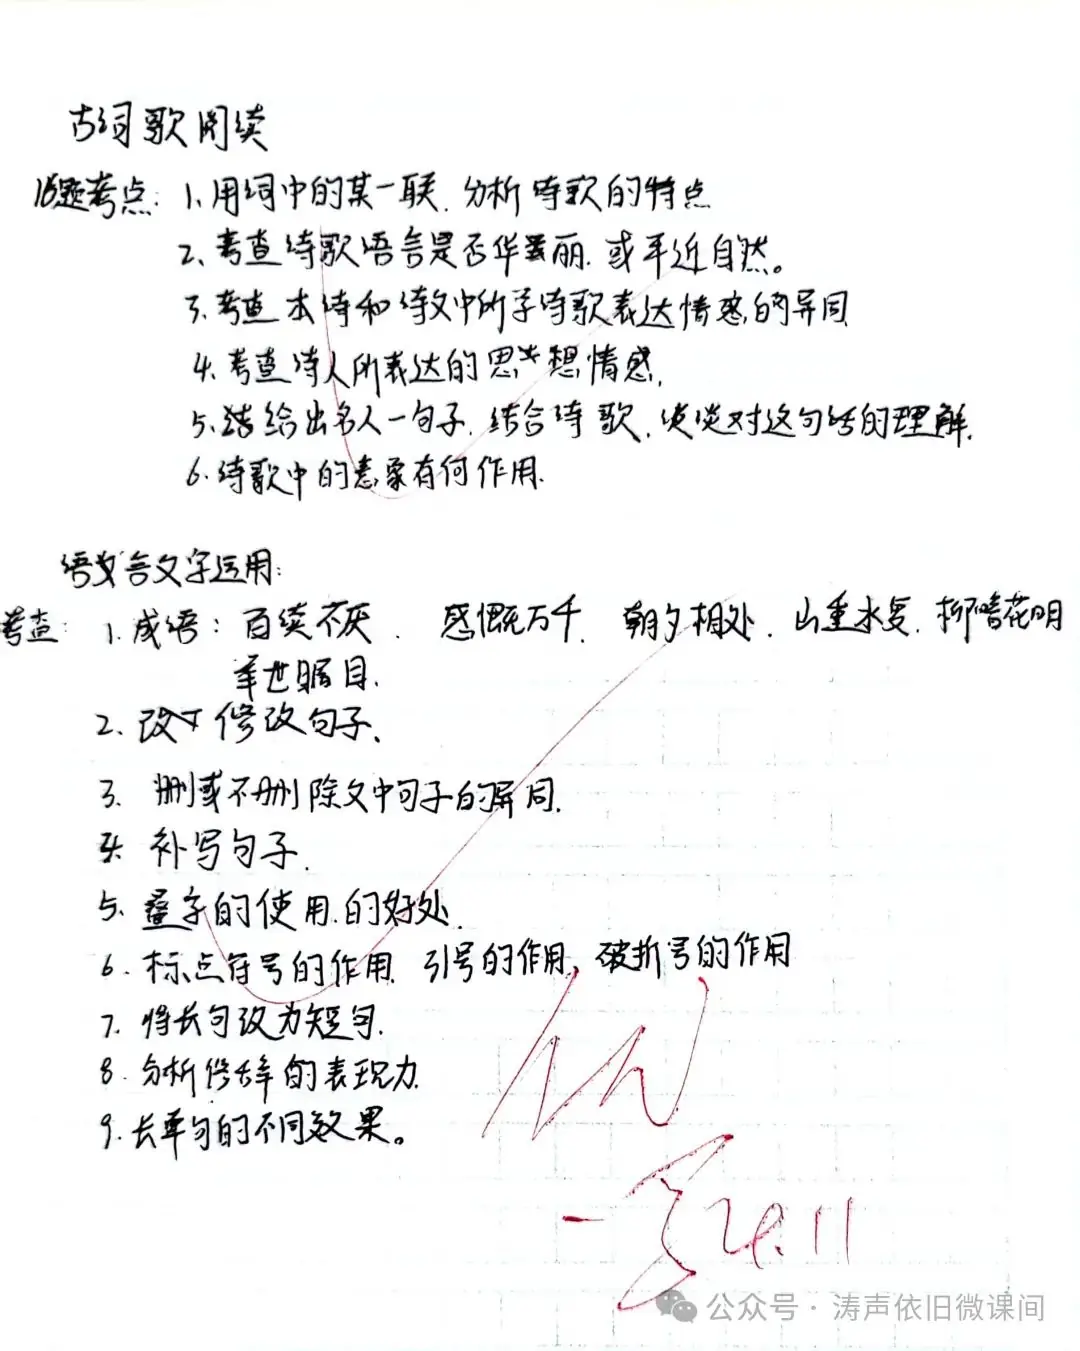 古词歌阅读
16题考点: 1、用词中的某一联、分析诗歌的特点
2、考查诗歌语言是否华丽、或平近自然。
3、考查本诗和诗文中所子诗歌表达情感的异同
4、考查诗人所表达的思想情感、
5、给出名人一句子、结合诗歌、谈谈对这句话的理解、
6、诗歌中的意象有何作用、
语言文字运用:
考查: 1、成语: 百读不厌、感慨万千、朝夕相处、山重水复、柳暗花明
举世瞩目、
2、改 修改句子、
3、删或不删除文中句子的异同、
4、补写句子、
5、叠字的使用、的好处、
6、标点符号的作用、引号的作用、破折号的作用
7、将长句改为短句、
8、分析修辞的表现力、
9、长单句的不同效果。
优
24.11
公众号·涛声依旧微课间